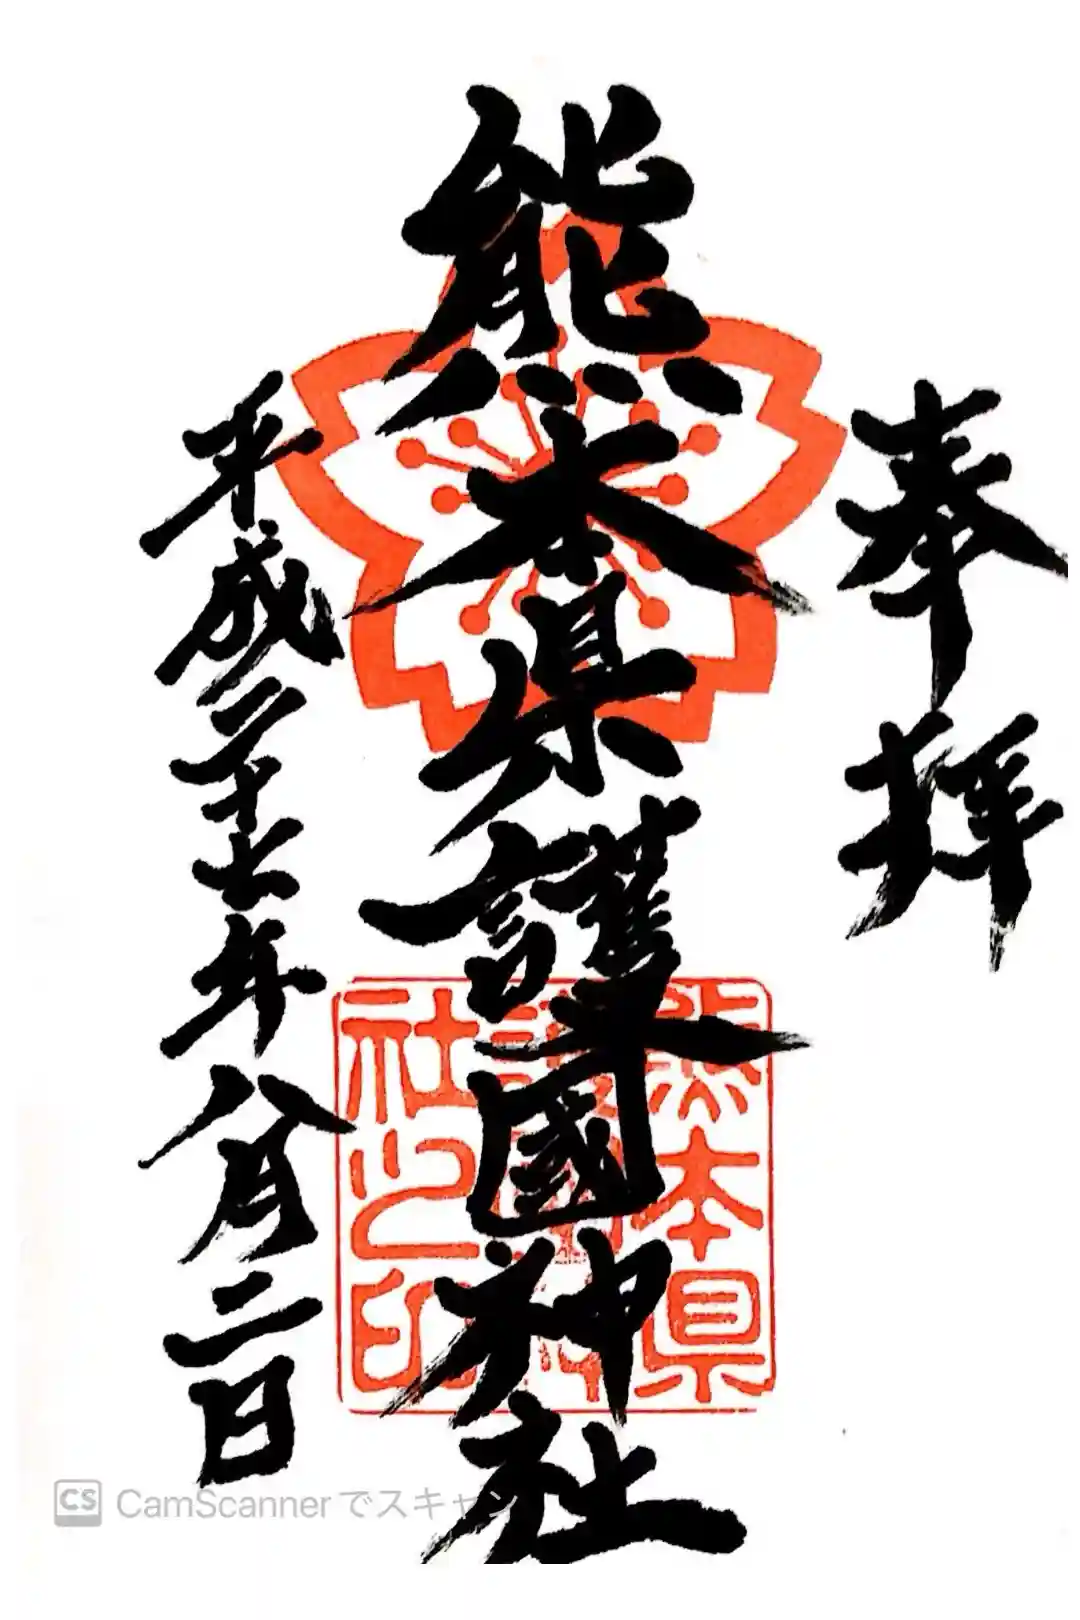 奉拝
熊本県護國神社
平成二十七年八月二日
熊本県
護國神
社之印
CS CamScannerでスキャン